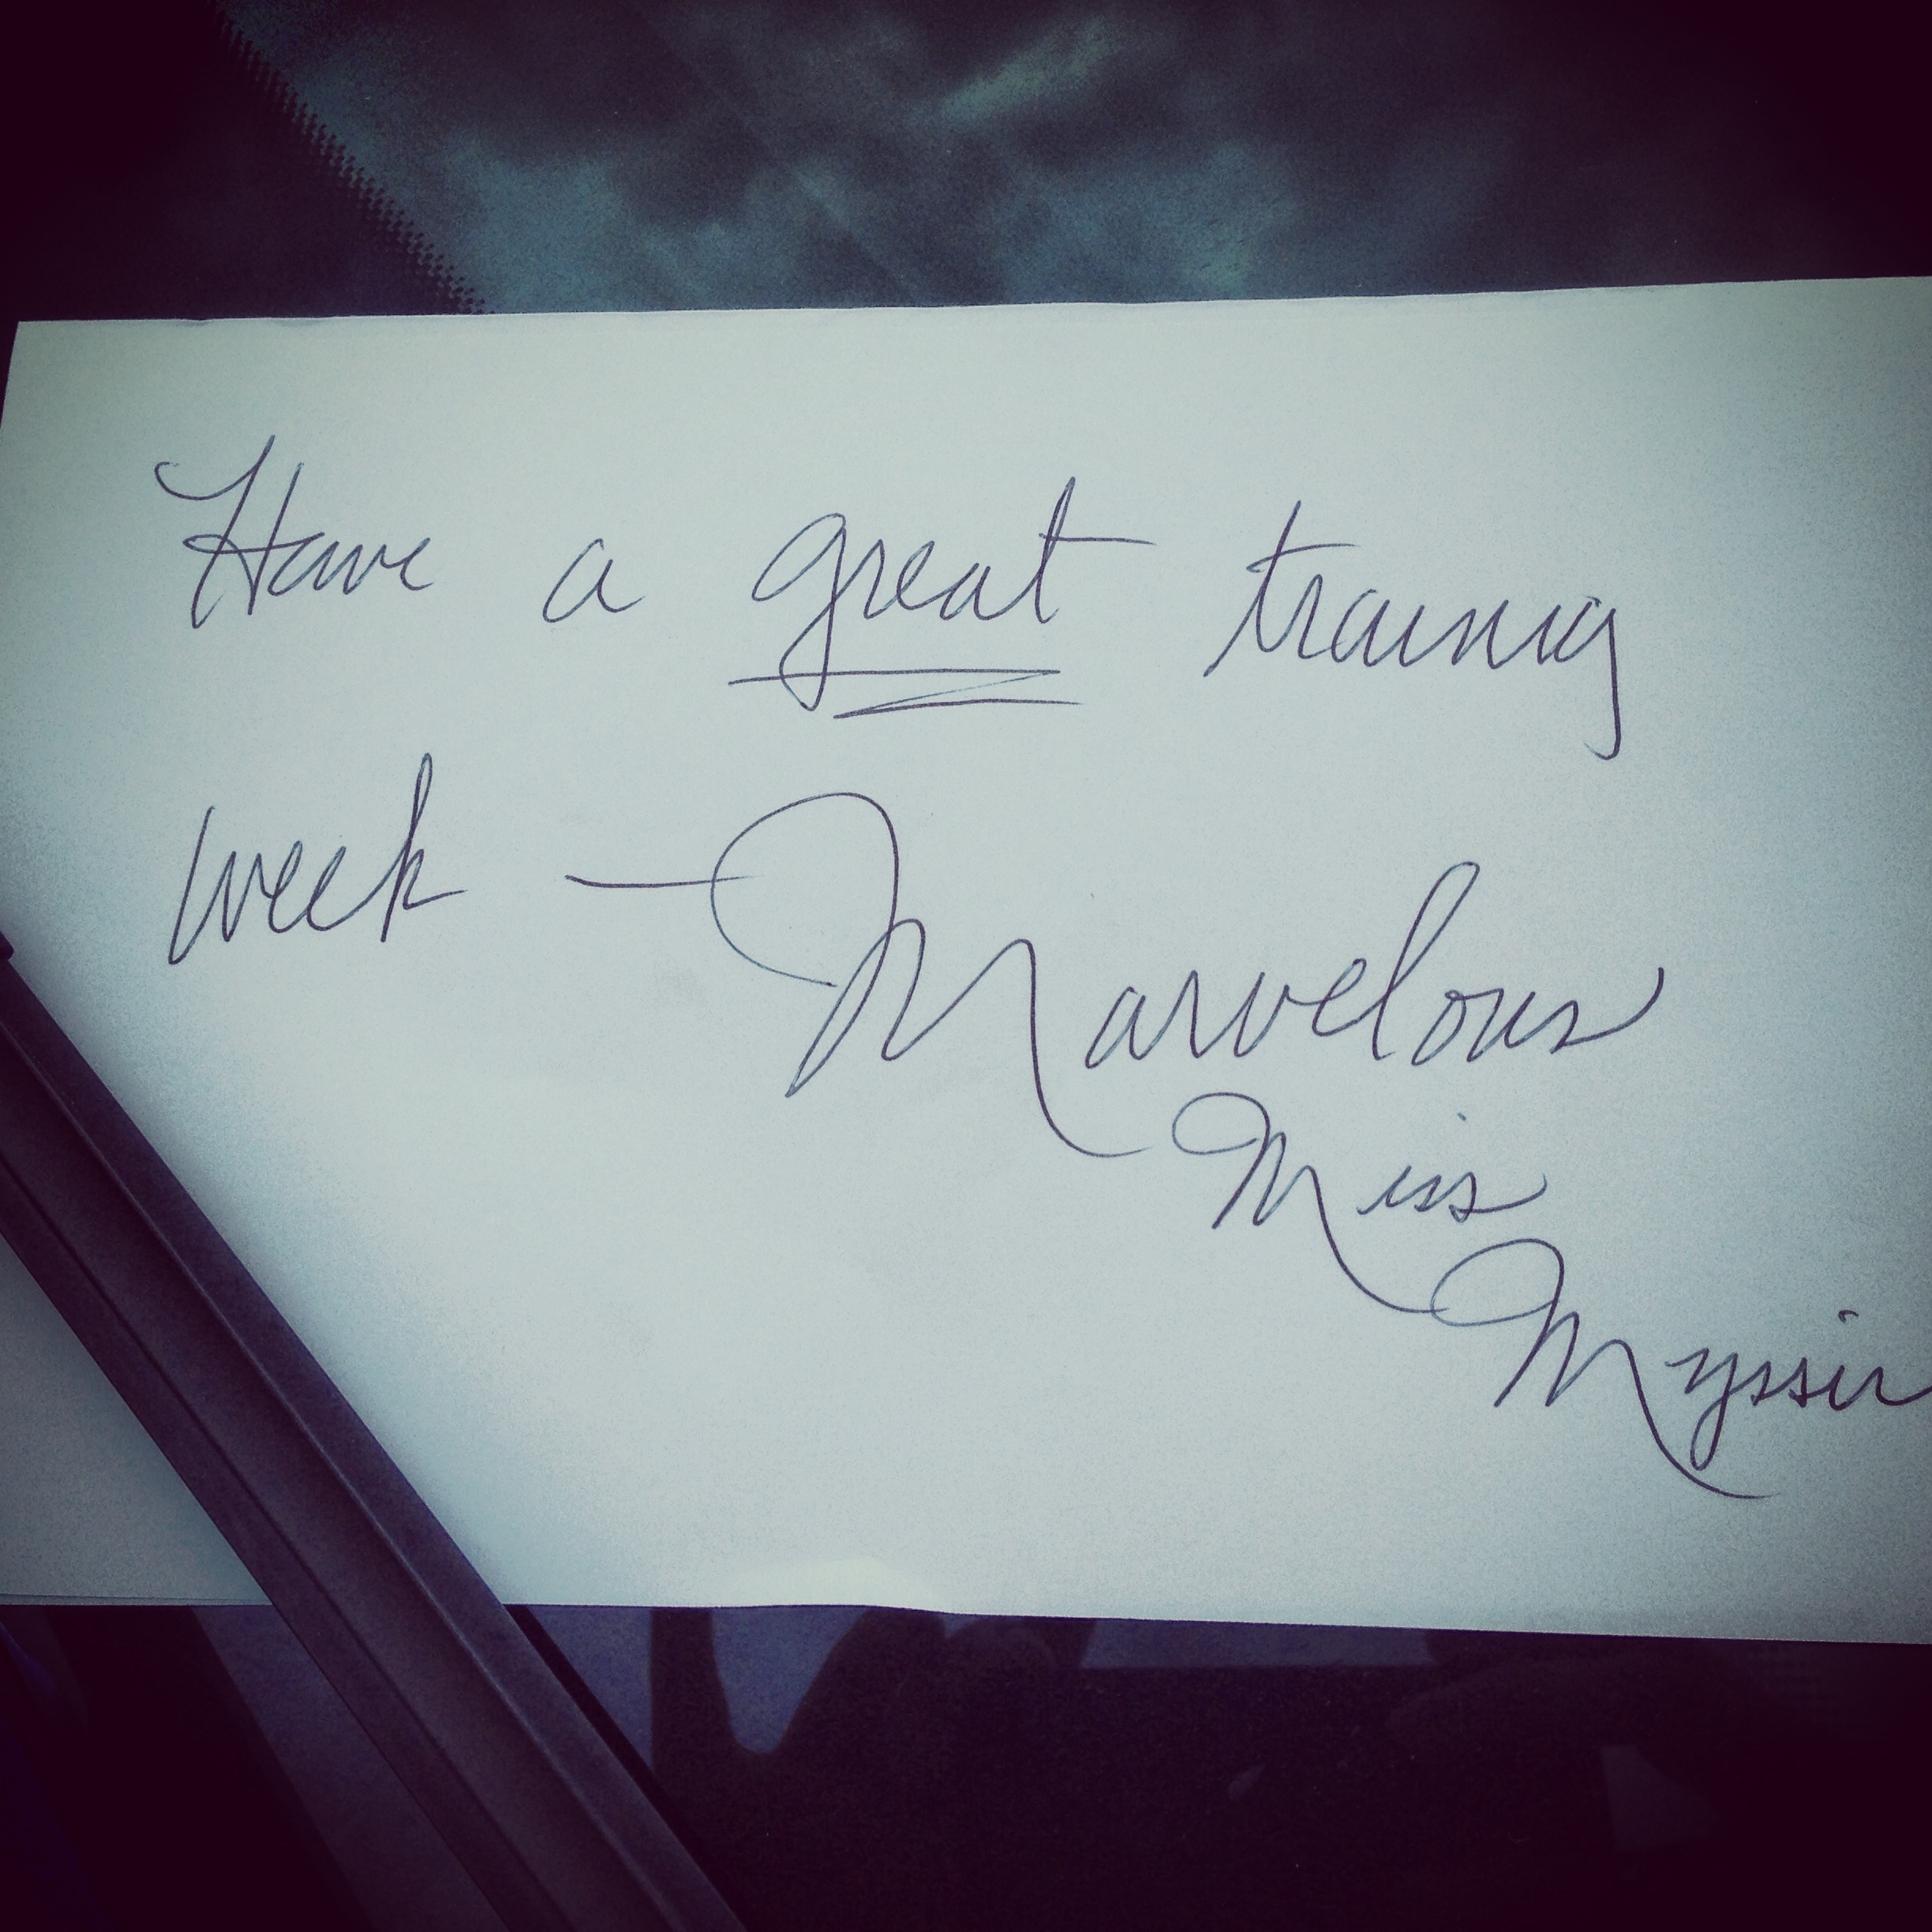 Have a great training
week — Marvelous
Miss